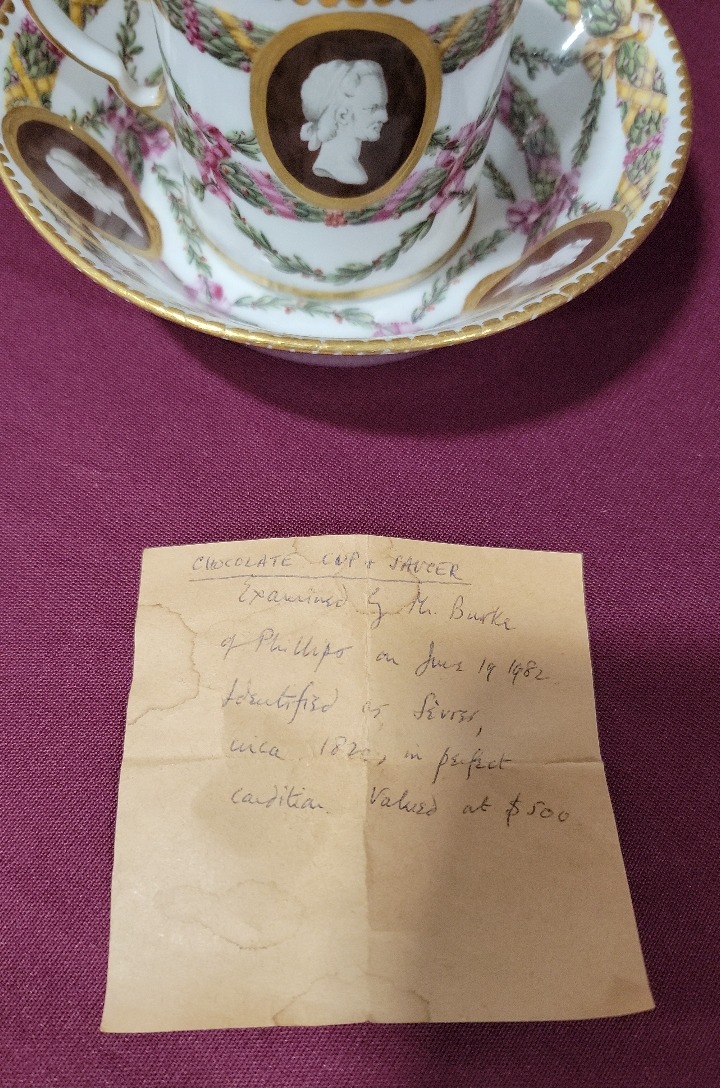 CHOCOLATE CUP & SAUCER
Examined by Mr. Burke
of Phillips on June 19 1982
Identified as Sèvres,
circa 1820, in perfect
condition. Valued at $500